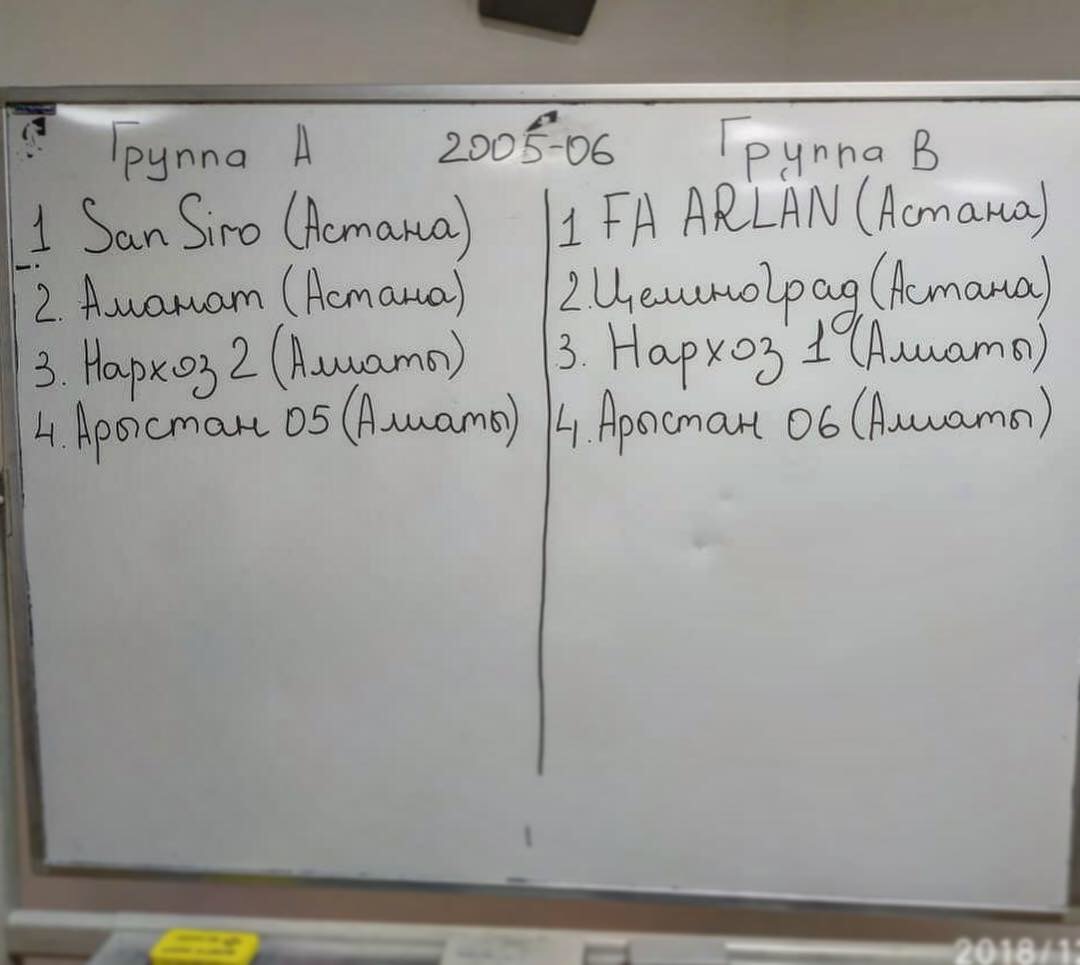 Группа А
2005-06
Группа В
1 San Siro (Астана)
2. Аманат (Астана)
3. Нархоз 2 (Алматы)
4. Арыстан 05 (Алматы)
1 FA ARLAN (Астана)
2. Целиноград (Астана)
3. Нархоз 1 (Алматы)
4. Арыстан 06 (Алматы)